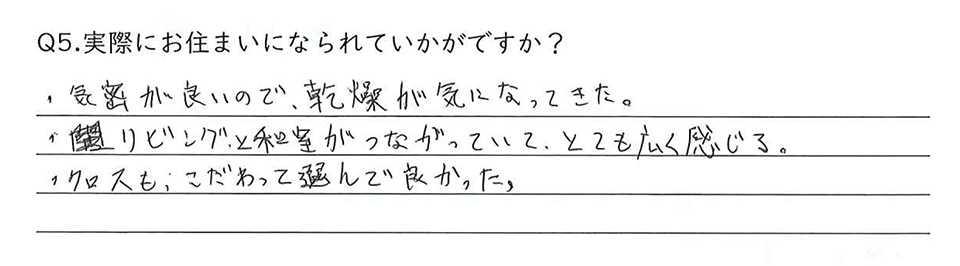 Q5.実際にお住まいになられていかがですか？
・気密が良いので、乾燥が気になってきた。
・リビングと和室がつながっていて、とても広く感じる。
・クロスも、こだわって選んで良かった。